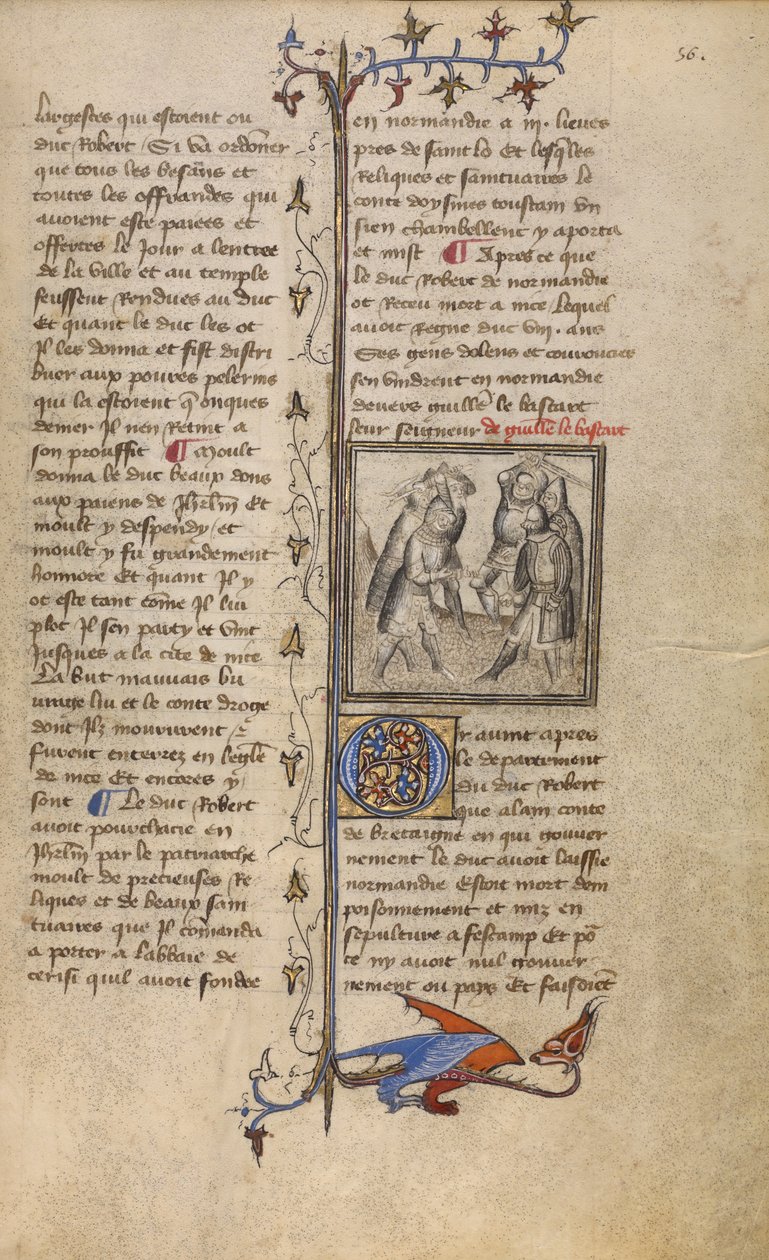 56.
largesces qui estoient ou
duc Robert / Si va ordōner
que tous les besans et
toutes les offrandes qui
avoient este paiees et
offertes le Jour a lentree
de la ville et au temple
feussent Rendues au duc
Et quant le duc les ot
Il les donna et fist distri
buer aux poures pelerins
qui la estoient q̄ onques
denier Il nen Retint a
son prouffit ¶ Moult
donna le duc beaux dons
aux paiens de Jhrl̄m Et
moult y despendy / et
moult y fu grandement
honnore Et quant Il y
ot este tant cōme Il lui
plot Il sen party et vint
Jusques a la cite de nice
La but mauvais bu
urage lui et le conte droge
dont Ilz moururent et
furent enterrez en legl̄e
de nice Et encores y
sont ¶ Le duc Robert
avoit pourchacie en
Jhrl̄m par le patriarche
moult de precieuses Re
liques et de beaux sain
tuaires que Il cōmanda
a porter a labbaie de
cerisi quil avoit fondee
en normandie a iij. lieues
pres de saint lo Et lesq̄les
Reliques et saintuaires le
conte doysmes toustain vn
sien chambellent y aporta
et mist ¶ Apres ce que
le duc Robert de normandie
ot Receu mort a nice lequel
avoit Regne duc viij. ans
Ses gens dolens et courouciez
sen vindrent en normandie
devers guill̄e le bastart
leur seigneur de guill̄e le bastart
Or avint apres
le departement
du duc Robert
que alain conte
de bretaigne en qui gouver
nement le duc avoit laissie
normandie Estoit mort dem
poisonnement et mis en
sepulture a fescamp Et po᷑
ce ny avoit nul gouver
nement ou pays Et faisoiēt